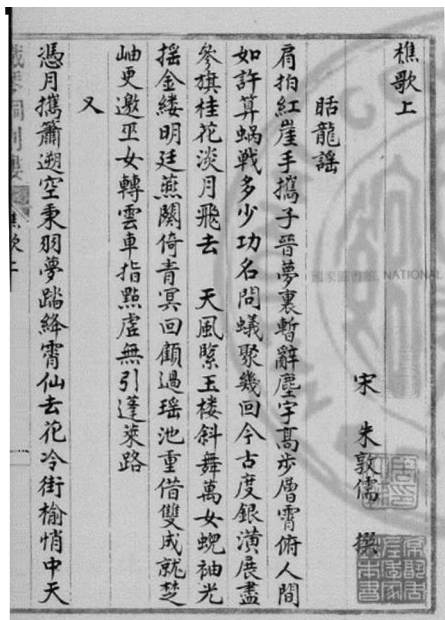 樵歌上
宋 朱敦儒 撰
聒龍謡
肩拍紅崖手攜子晉夢裏暫辭塵宇髙步層霄俯人間
如許算蝸戰多少功名問蟻聚幾回今古度銀潢展盡
參旗桂花淡月飛去 天風緊玉楼斜舞萬女蜺袖光
摇金縷明廷燕闋倚青冥回顧過瑶池重借雙成就楚
岫更邀巫女轉雲車指㸃虛無引蓬萊路
又
憑月攜簫遡空秉羽夢踏絳霄仙去花冷街榆悄中天
國家圖書館 NATIONAL